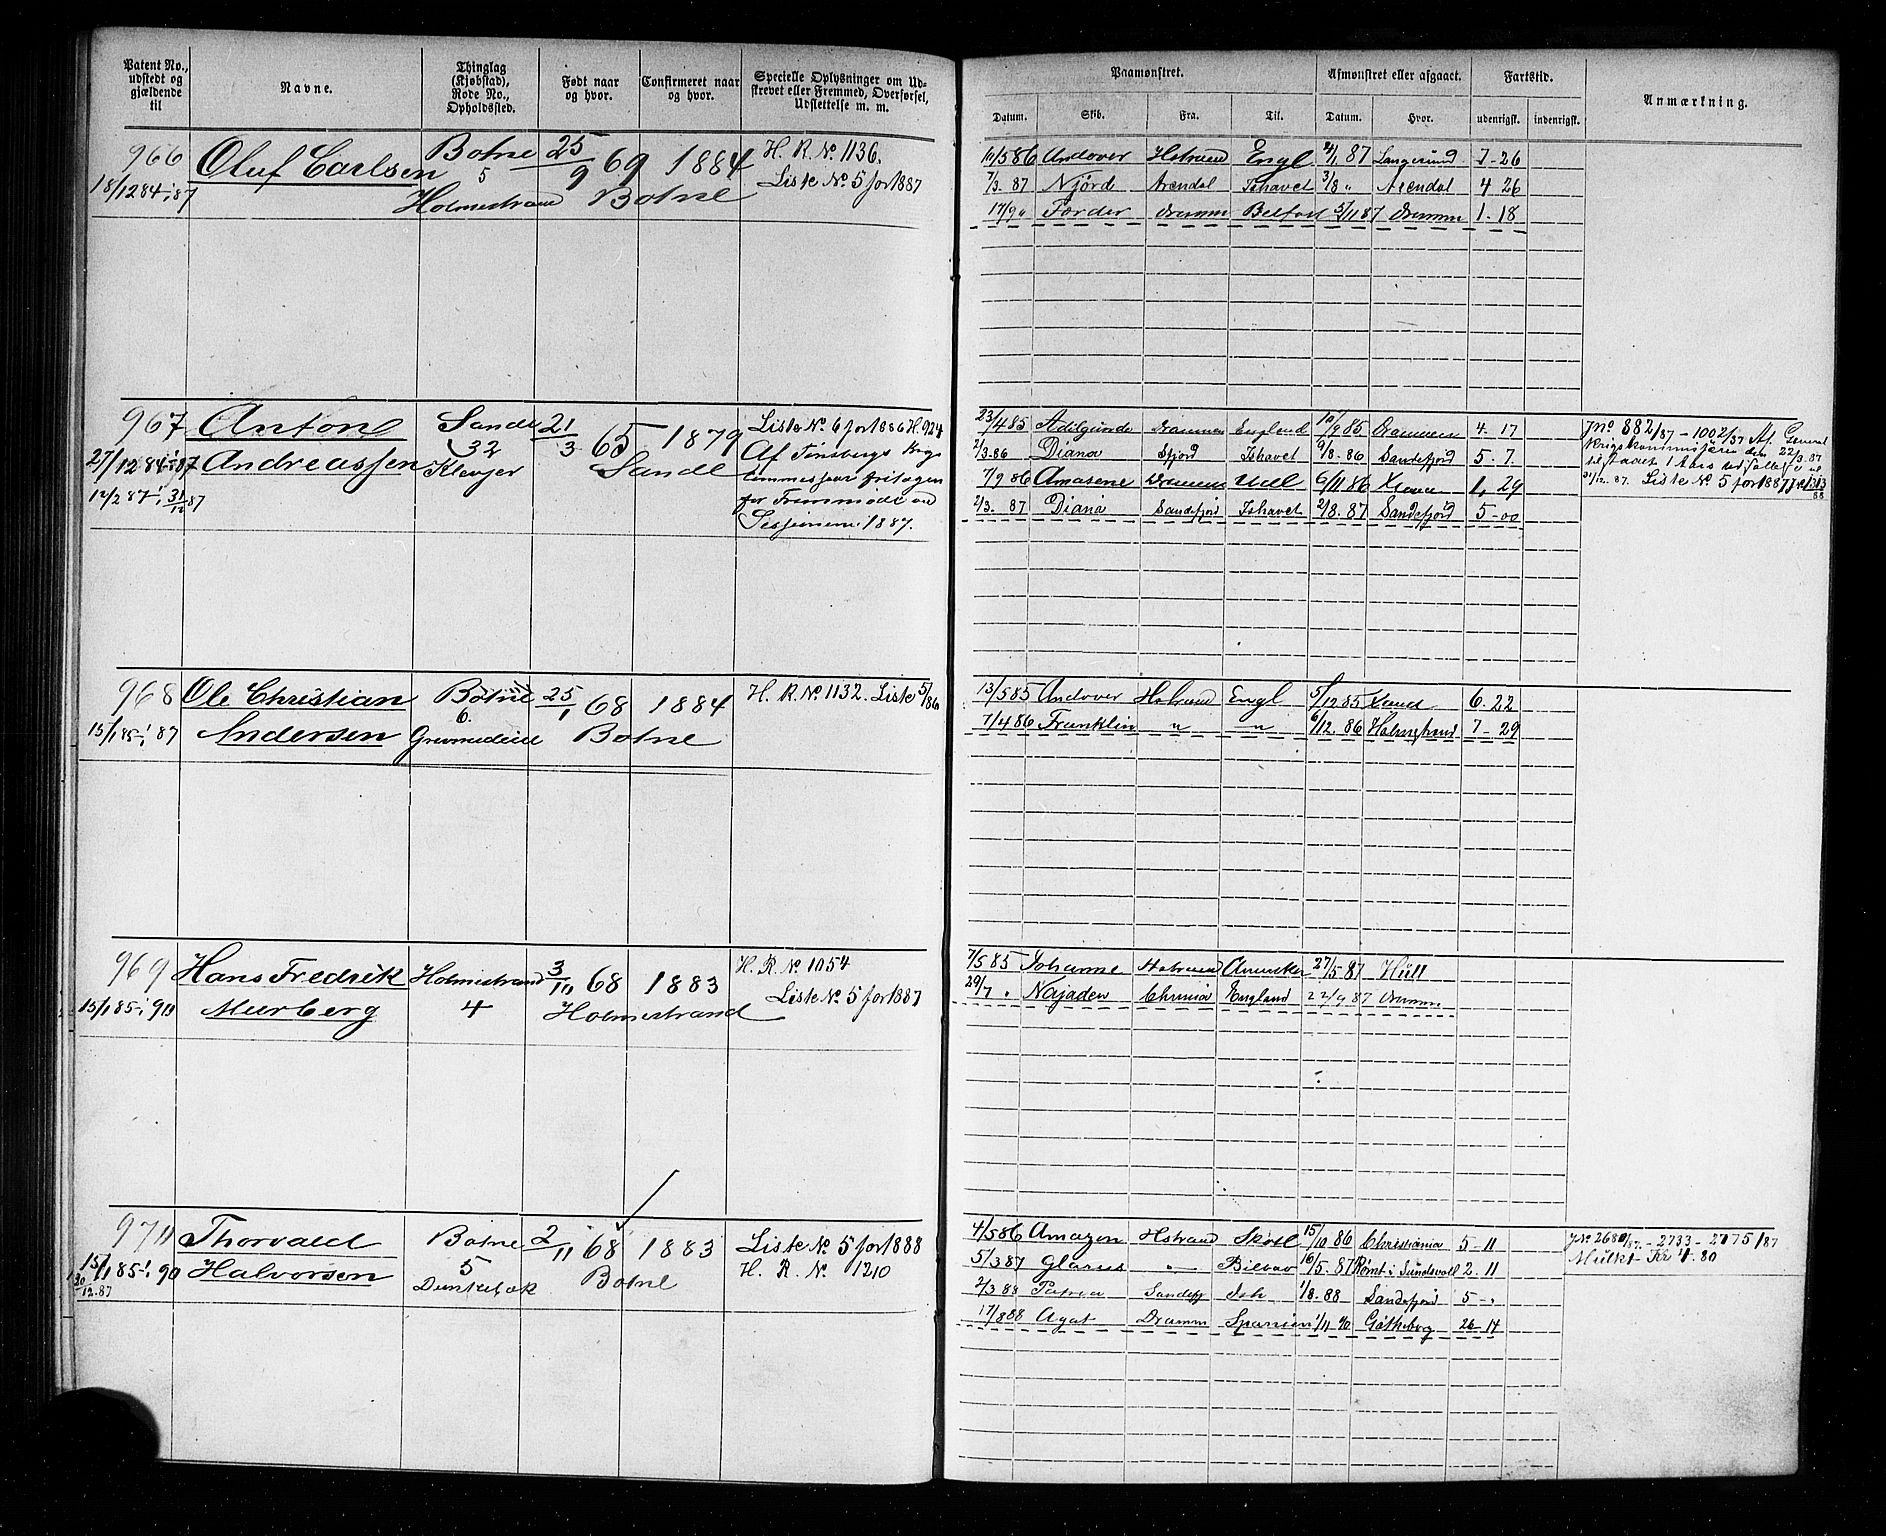 Patent No., udstedt og gjældende til
Navne.
Thinglag (Kjøbstad), Rode No., Opholdssted.
Født naar og hvor.
Confirmeret naar og hvor.
Specielle Oplysninger om Udskrevet eller Fremmed, Overførsel, Udslettelse m. m.
Paamønstret.
Afmønstret eller afgaaet.
Fartstid.
Anmærkning.
Datum. Skib. Fra. Til. Datum. Hvor. udenrigsk. indenrigsk.
966 Oluf Carlsen Botne 25/9 69 1884 H. R. No. 1136.
18/12 84-1/1 87 5 Holmestrand Botne Liste No. 5 for 1887
10/5 86 Andover Hstrand Engl 24/1 87 Langesund 7-26
7/3 87 Njörd Arendal Ishavet 3/8 " Arendal 4 26
17/9 " Færder Dramm Belfast 5/11 87 Dramm 1-18
967 Anton Sande 21/3 65 1879 Liste No 6 for 1886 H. 924
27/12 84-1/1 87 Andreassen 32 Klevjer Sande Af Tönsbergs Krigs
12/2 87-31/12 87 commissær fritagen
for Fremmöde ved
Sessionen i 1887.
23/4 85 Adelgunde Drammen England 10/9 85 Drammen 4. 17
2/3 86 Diana Sfjord Ishavet 9/8-86 Sandefjord 5-7.
7/9 86 Amasone Drammen 6/11 86 1, 29
2/3. 87 Diana Sandefjord Ishavet 2/8. 87 Sandefjord 5-00
Jno 882/87-1002/87 Af General
Krigskommissæren den 22/3 87
tilstaaet 1 Aars
31/12. 87. Liste No 5 for 1887
968 Ole Christian Botne 25/1 68 1884 H. R. No. 1132. Liste 5/86
15/1 85-1/1 87 Andersen 6. Botne
13/5 85 Andover Hstrand Engl 5/12 85 6. 22
7/4 86 Franklin " " 6/12. 86 Holmestrand 7-29
969 Hans Fredrik Holmestrand 3/10 68 1883 H. R. No 1054
15/1 85-1/1 90 Murberg 4 Holmestrand Liste No. 5 for 1887
7/5 85 Johanne Hstrand Amerika 27/5 87 Hull
29/7 " Najaden Chrania England 22/9 87 Dramm
970 Thorvald Botne 2/11 68 1883 Liste No. 5 for 1888
15/1 85-1/1 90 Halvorsen 5 Dunkebæk Botne H. R. No. 1210
30/12. 87
4/5 86 Amazon Hstrand Skotl 15/10 86 Christiania 5-11
5/3 87 Glarus " Bilbao 16/5. 87 Rømt i Sundsvall 2. 11
2/3 88 Patria Sandefj Ish 1/8. 88 Sandefjord 5-"
17/8 88 Agat Dramm Spanien 1/11 90 Götheborg 26-14
Jno 2680/87.-2733-2775/87
Mulkt Kr 4. 80